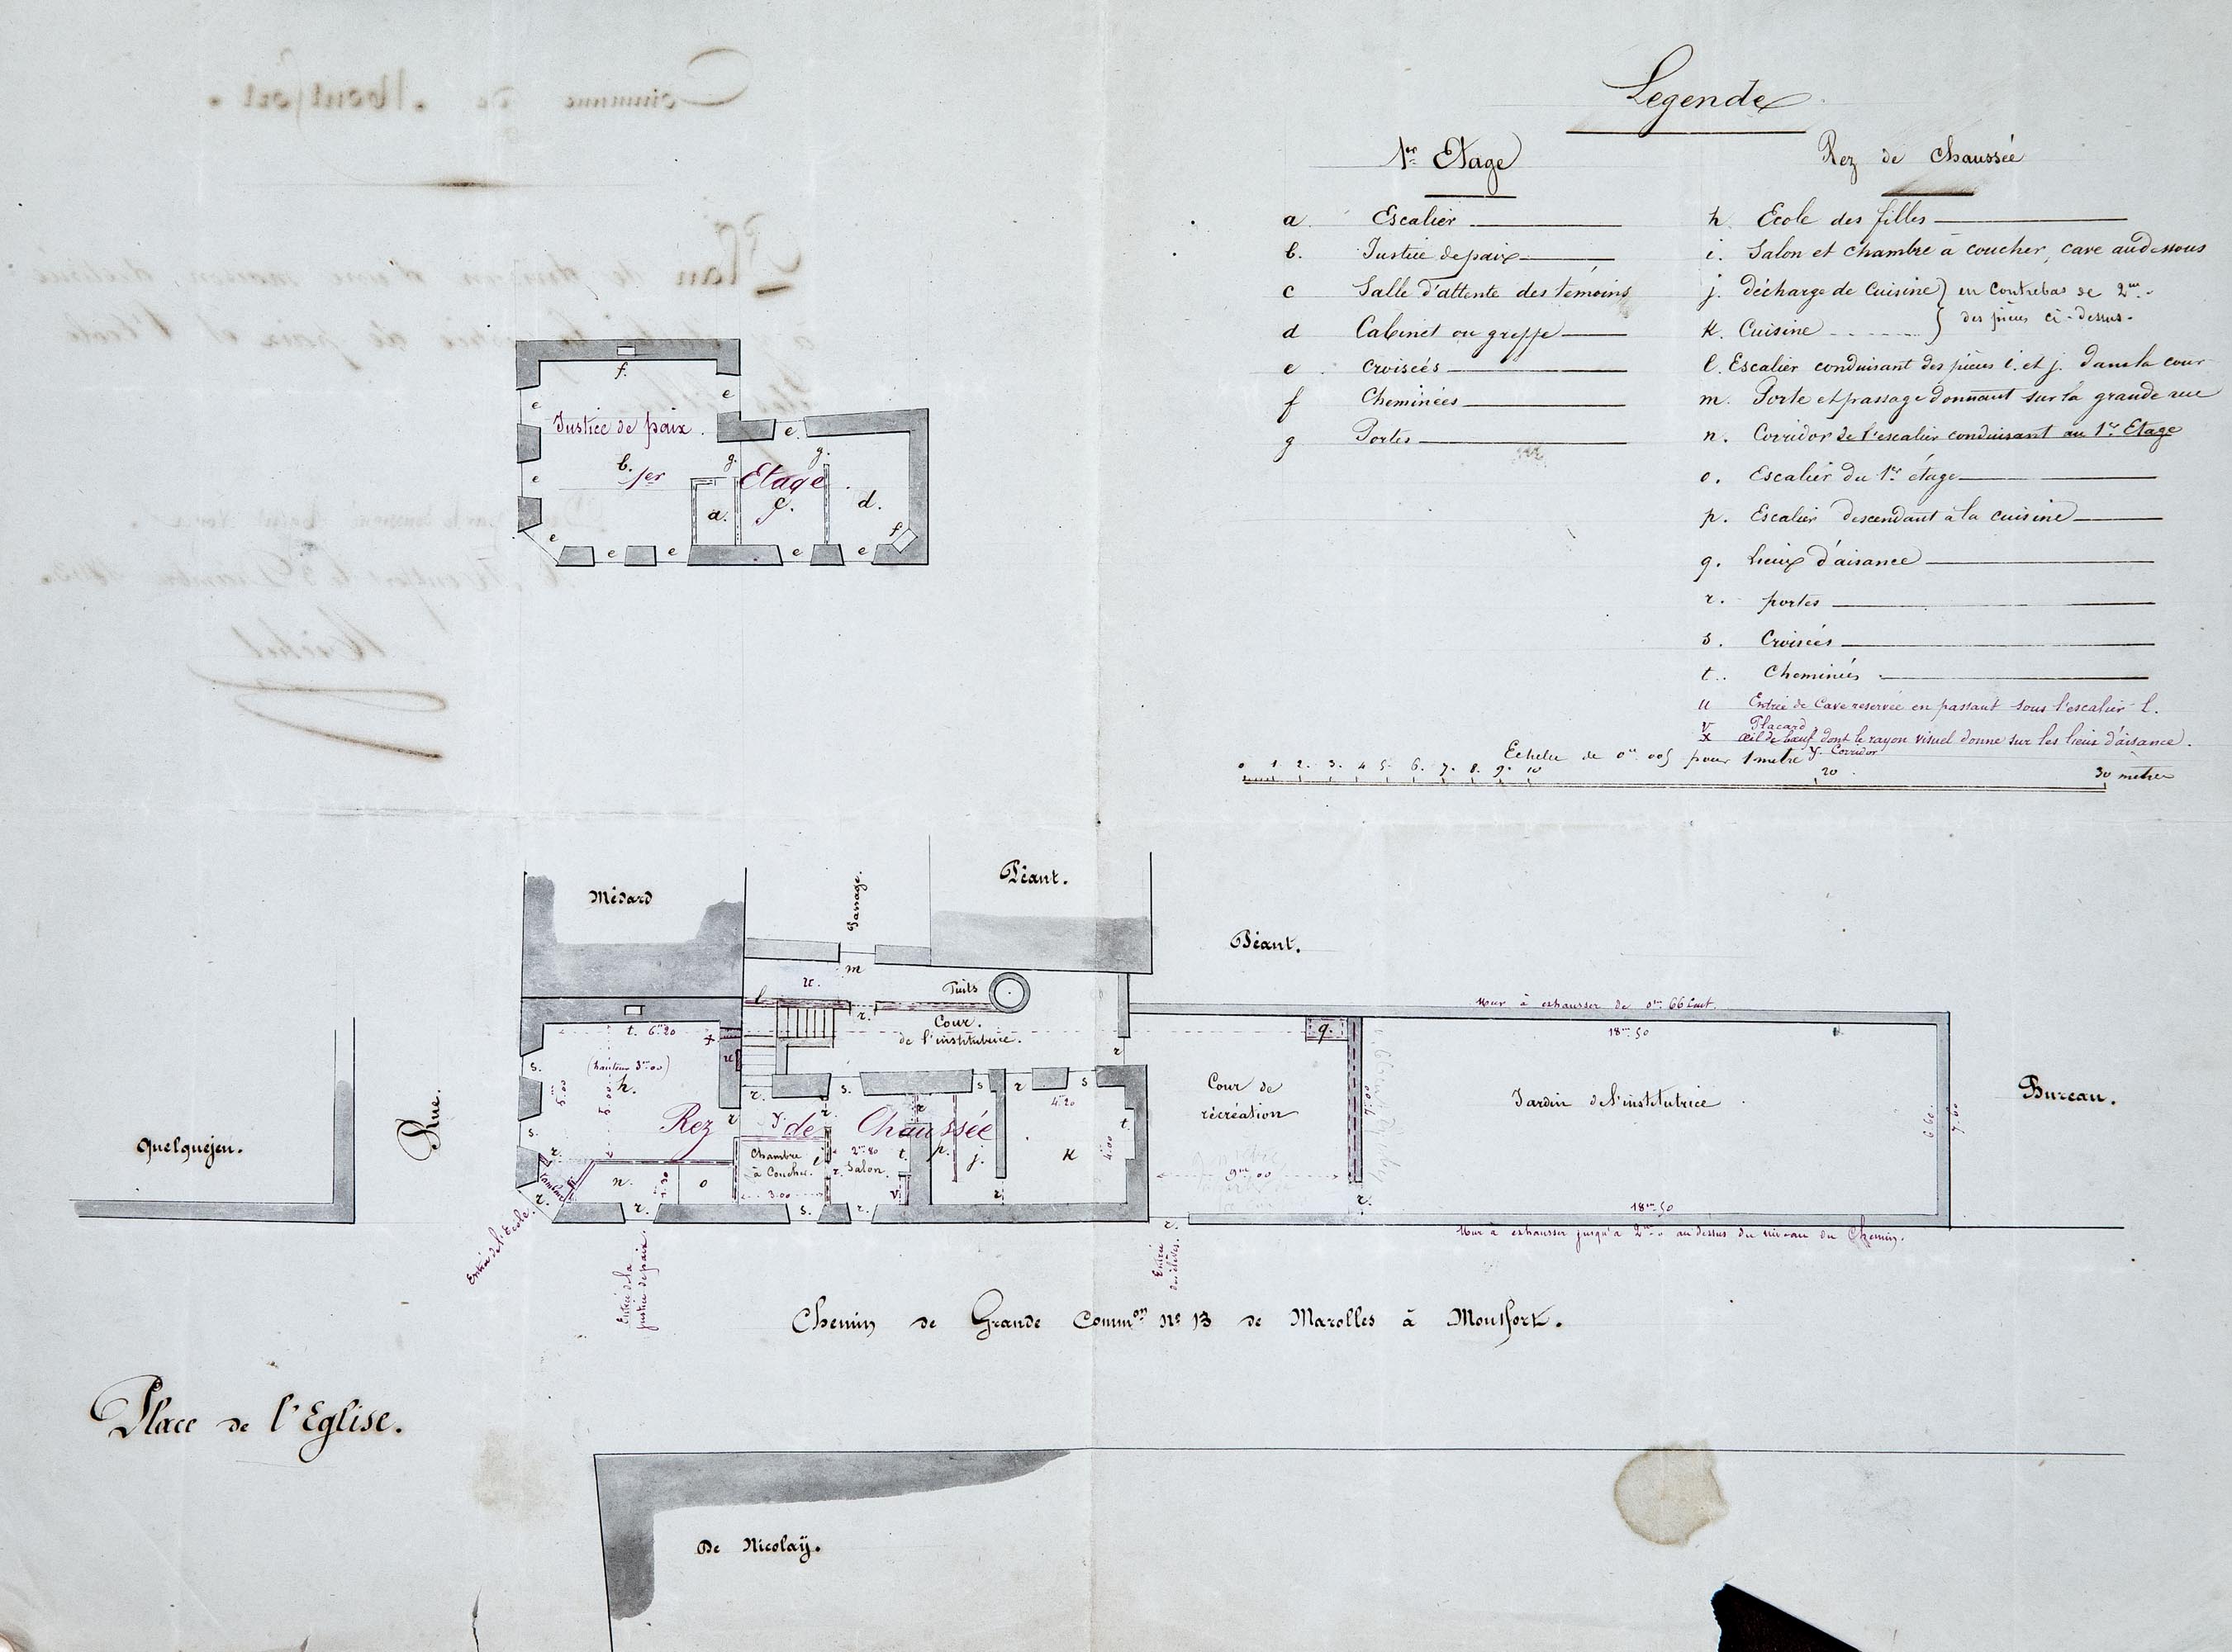 Legende
1er Etage
a. Escalier
b. Justice de paix
c Salle d'attente des témoins
d Cabinet ou greffe
e croisées
f Cheminées
g Portes
Rez de chaussée
h. Ecole des filles
i. Salon et chambre à coucher, cave au dessous
j. décharge de Cuisine } en contrebas de 2m
K. Cuisine } des pièces ci-dessus.
l. Escalier conduisant des pièces i. et j. dans la cour
m. Porte et passage donnant sur la grande rue
n. Corridor de l'escalier conduisant au 1er Etage
o. Escalier du 1er étage
p. Escalier descendant à la cuisine
q. Lieux d'aisance
r. portes
s. Croisées
t. Cheminées
u Entrée de Cave reservée en passant sous l'escalier l.
v Placard
x œil de bœuf dont le rayon visuel donne sur les lieux d'aisance.
y. Corridor
Echelle de 0m.005 pour 1 mètre
0 1 2. 3. 4 5. 6. 7. 8. 9. 10 20 30 mètres
f.
e e
Justice de paix.
e.
b. g. g.
1er Etage.
e
a. c. d.
f
e e e e e
Médard
Passage.
Péant.
Péant.
m
u.
l
Puits
r.
Cour.
de l'institutrice.
Mur à exhausser de 0m 66 Cent.
q.
18m.50
t. 6m20
x
(hauteur 3m00)
h.
u
s.
5.00
s. s s
r. r r
4.20
Cour de
récréation
Jardin de l'institutrice
Bureau.
Rue.
Quelquejeu.
Rez de Chaussée
y.
t.
K
4.00
7.00
6.60
7.00
Chambre
à Coucher.
i
2m.80
Salon.
t.
p. j.
n. o
3.00
v
9m 00
r.
18m.50
r. r. s. r. r.
Entrée de l'Ecole.
Entrée de la
justice de paix.
Entrée
des élèves.
Mur à exhausser jusqu'à 2m.00 au dessus du niveau du Chemin.
Chemin de Grande Common no 13 de Marolles à Montfort.
Place de l'Eglise.
De Nicolaÿ.
Commune de Montfort.